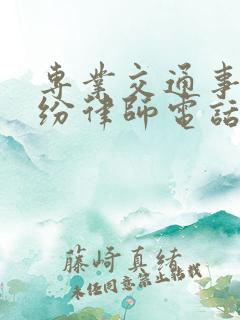 專業交通事
紛律師電話
藤崎真緒
未經同意禁止轉載